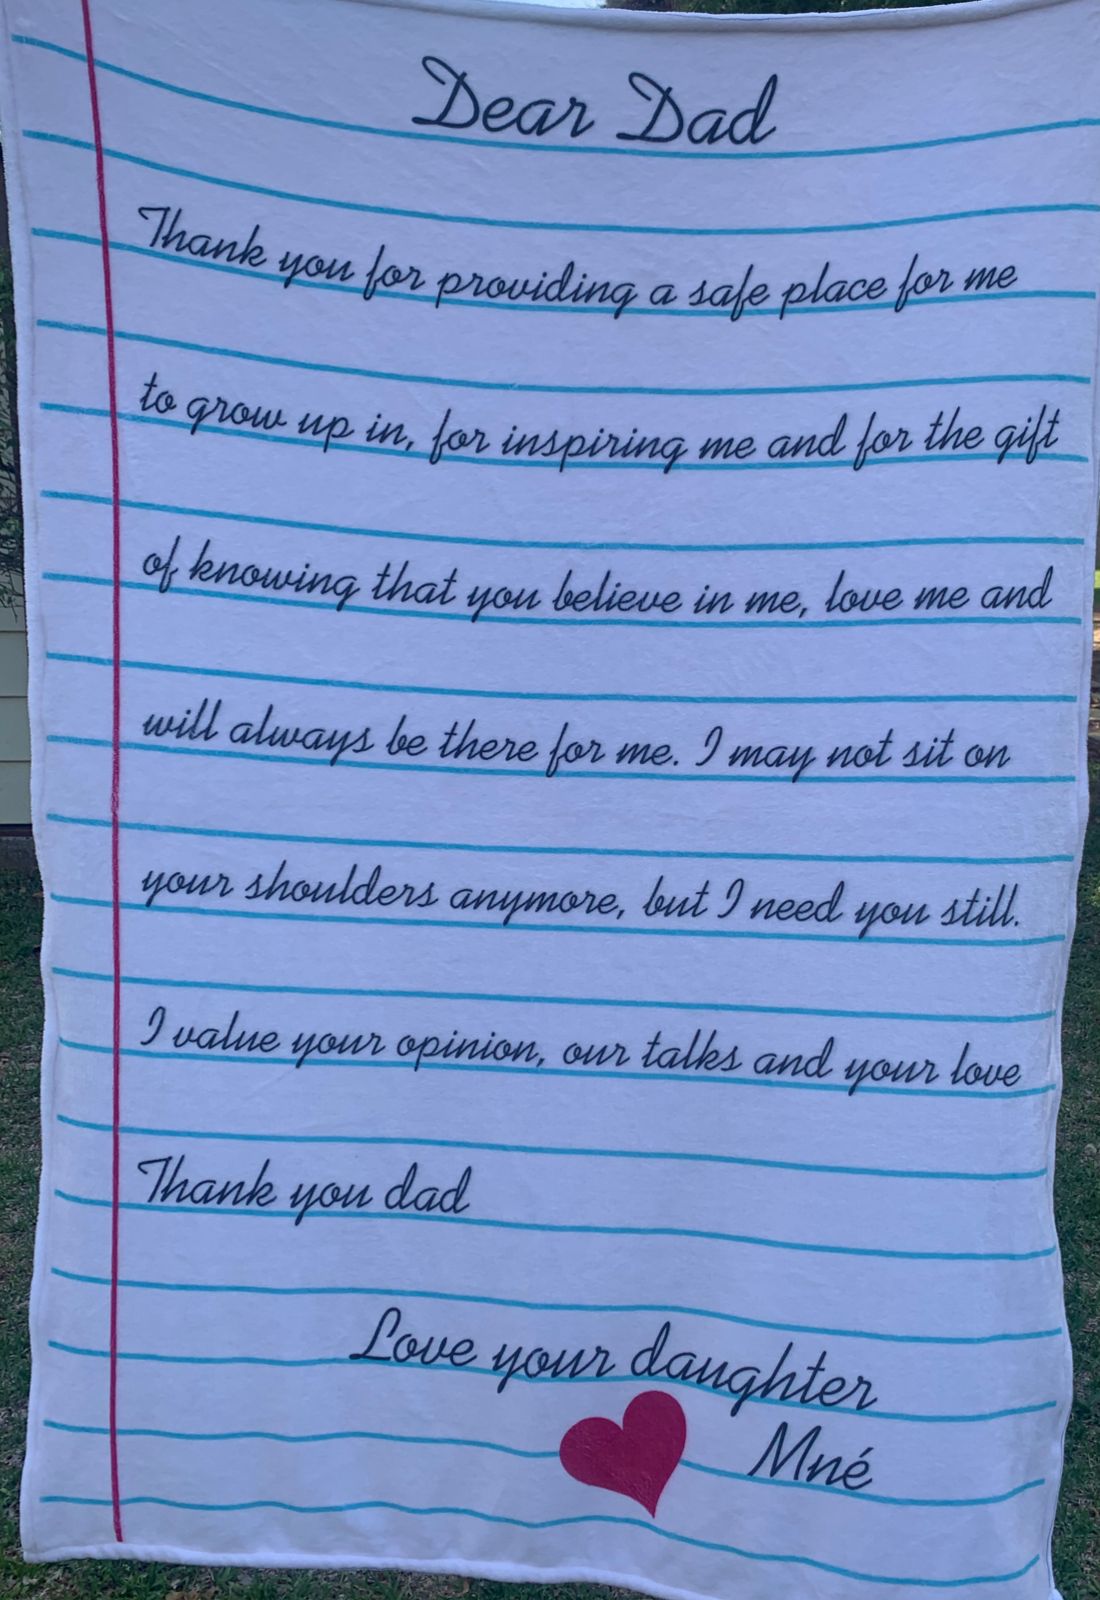 Dear Dad
Thank you for providing a safe place for me
to grow up in, for inspiring me and for the gift
of knowing that you believe in me, love me and
will always be there for me. I may not sit on
your shoulders anymore, but I need you still.
I value your opinion, our talks and your love
Thank you dad
Love your daughter
Mné